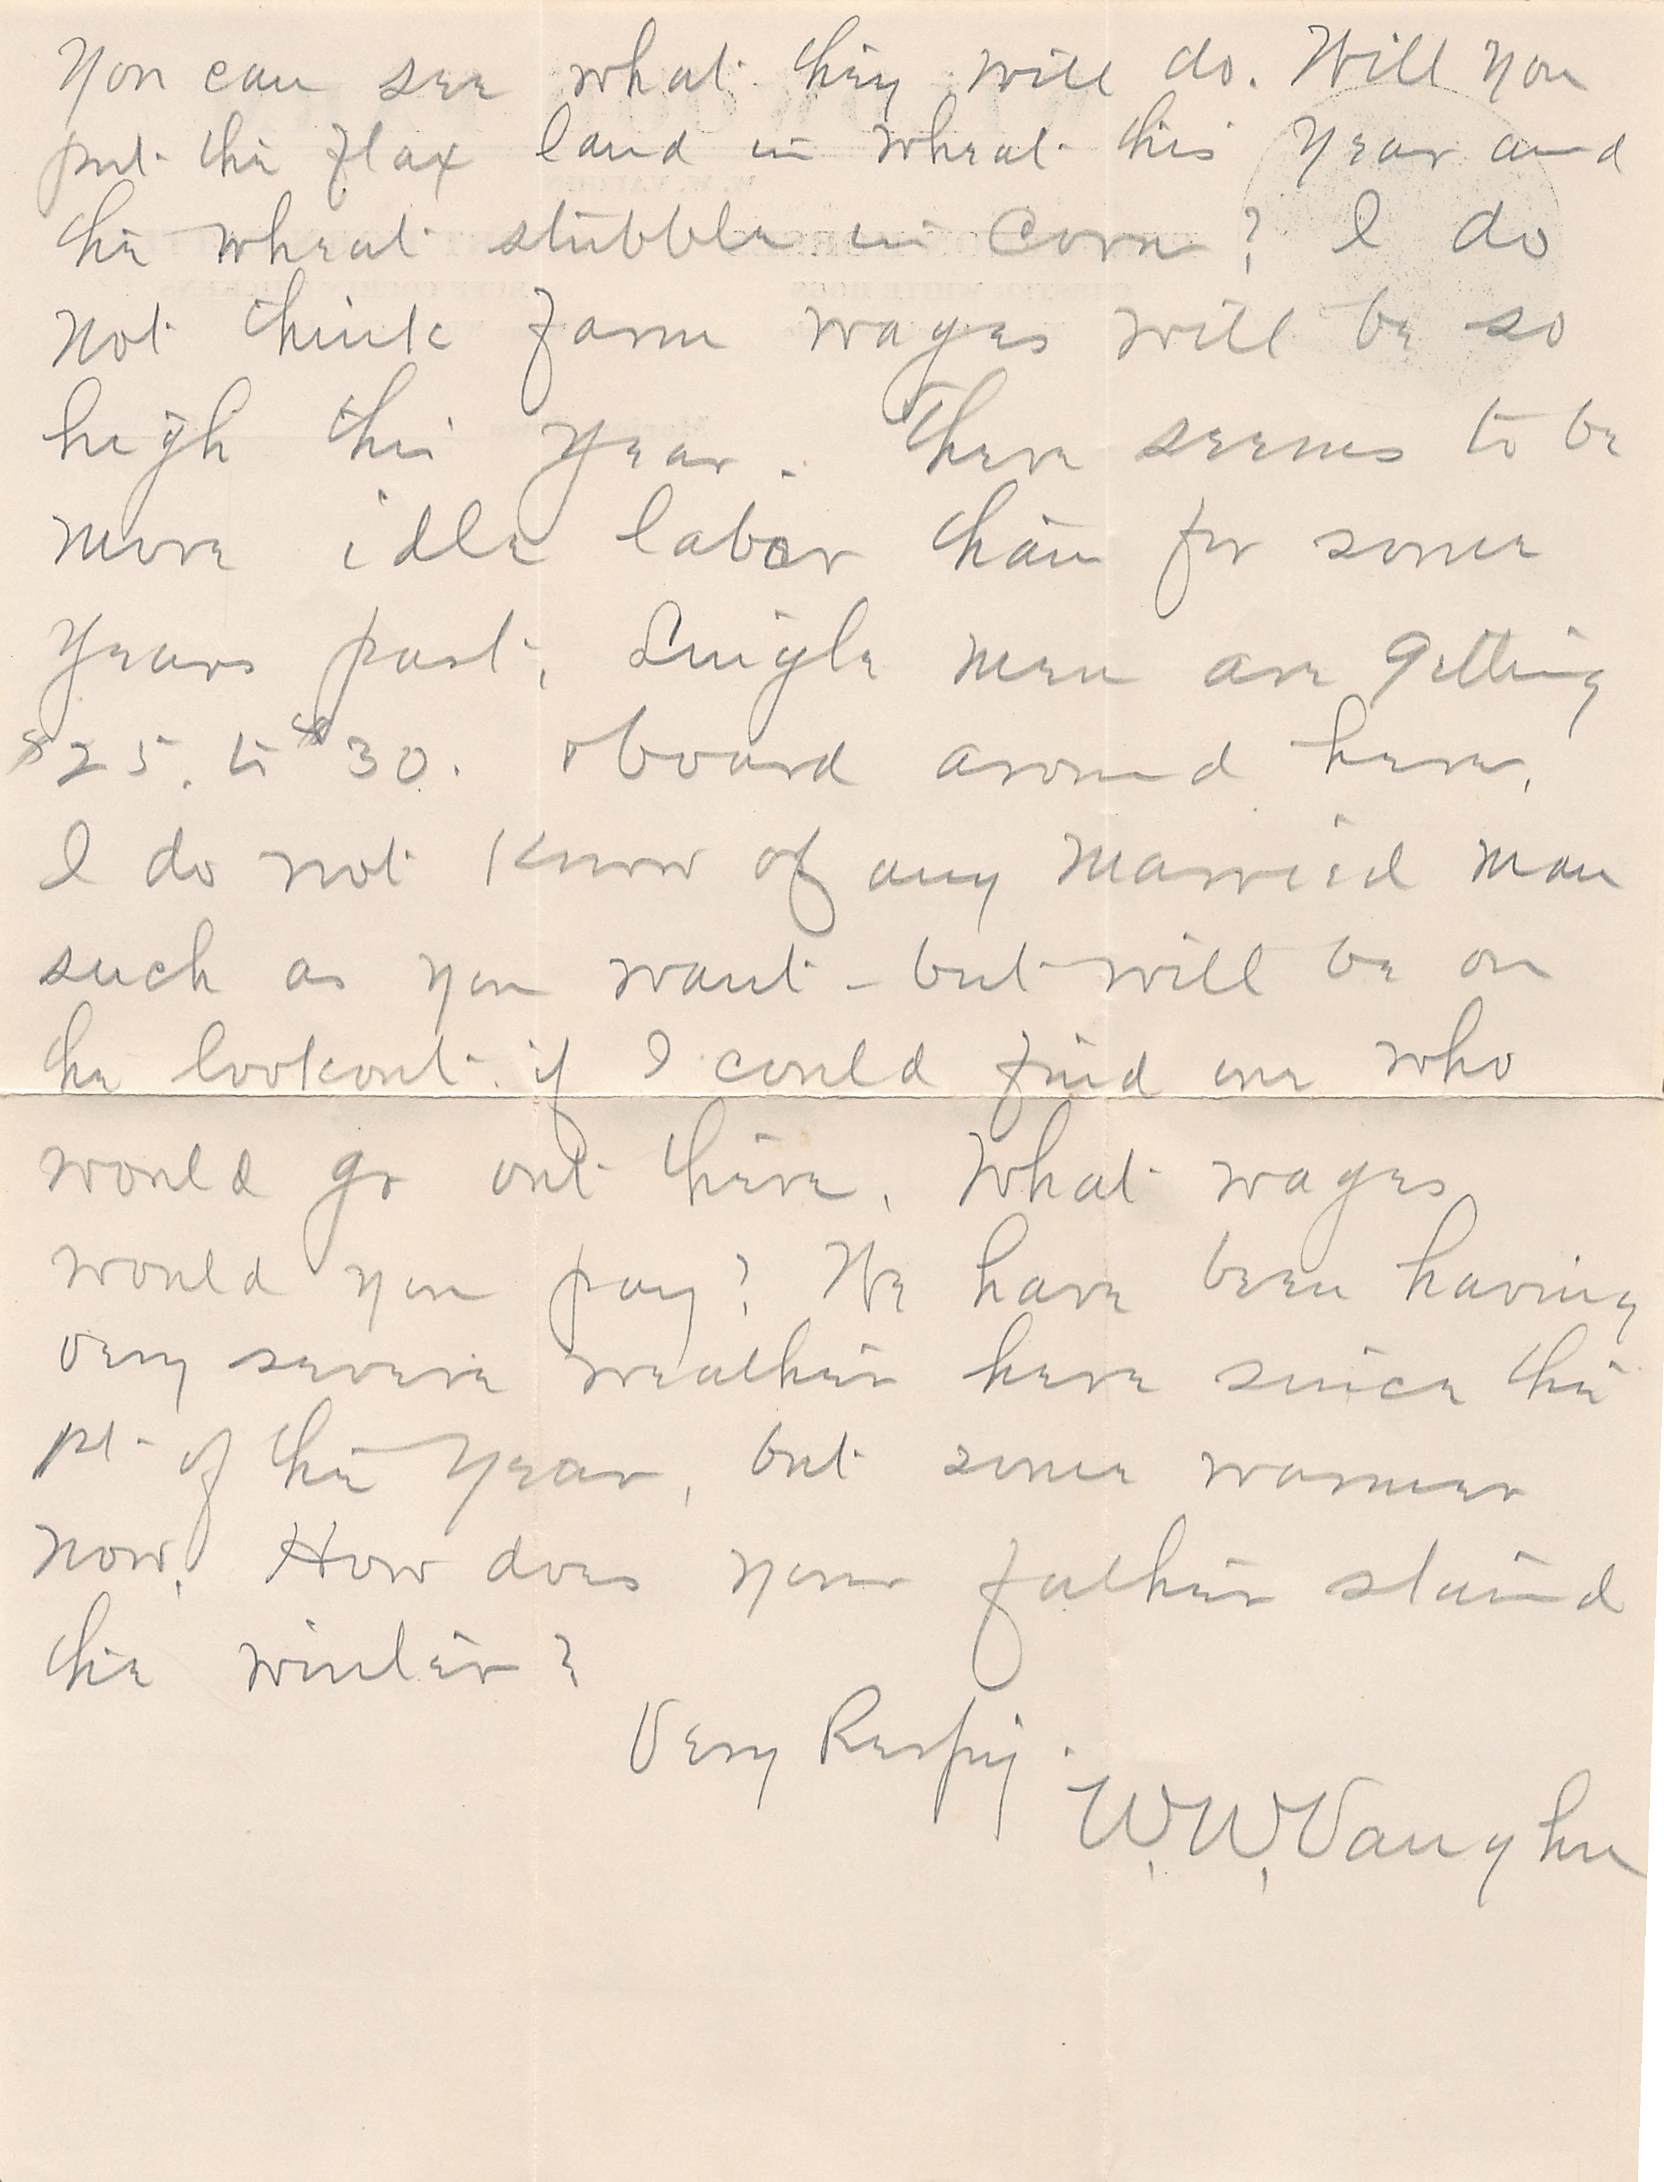 You can see what they will do. Will you
put the flax land in wheat this year and
the wheat stubble in Corn? I do
not think farm wages will be so
high this year. There seems to be
more idle labor than for some
years past, Single men are getting
$25. to $30. & board around here.
I do not know of any married man
such as you want - but will be on
the lookout if I could find one who
would go out there. What wages
would you pay? We have been having
very severe weather here since the
1st of the year, but some warmer
now. How does your father stand
the winter?
Very Respy.
W. W. Vaughn